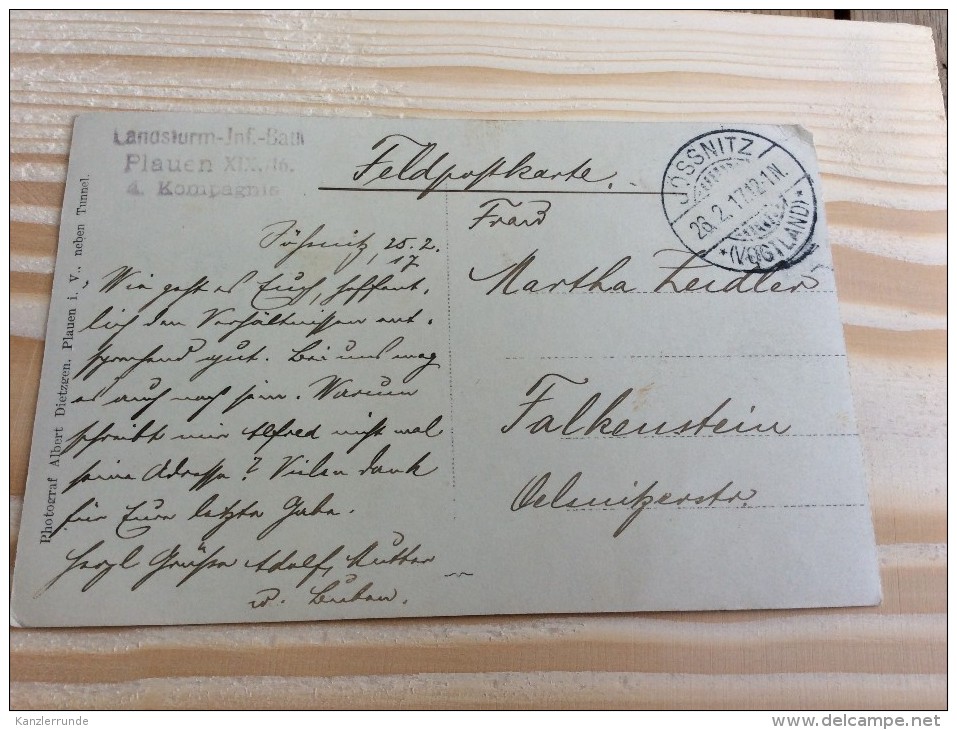 Landsturm-Inf.-Batl
Plauen XIX./16.
4. Kompagnie
Feldpostkarte.
JÖSSNITZ
26.2.17.12-1N.
*(VOGTLAND)*
Jößnitz, 25.2.
17
Wie geht es Euch, hoffent-
lich den Verhältnissen ent-
sprechend gut. Bei uns mag
es auch noch sein. Warum
schreibt mir Alfred nicht mal
seine Adresse? Vielen Dank
für Eure letzte Gabe.
Herzl Grüße Adolf, Mutter
u. Buben.
Frau
Martha Zeidler
Falkenstein
Oelsnitzerstr.
Photograf Albert Dietzgen, Plauen i. V., neben Tunnel.
Kanzlerrunde
www.delcampe.net